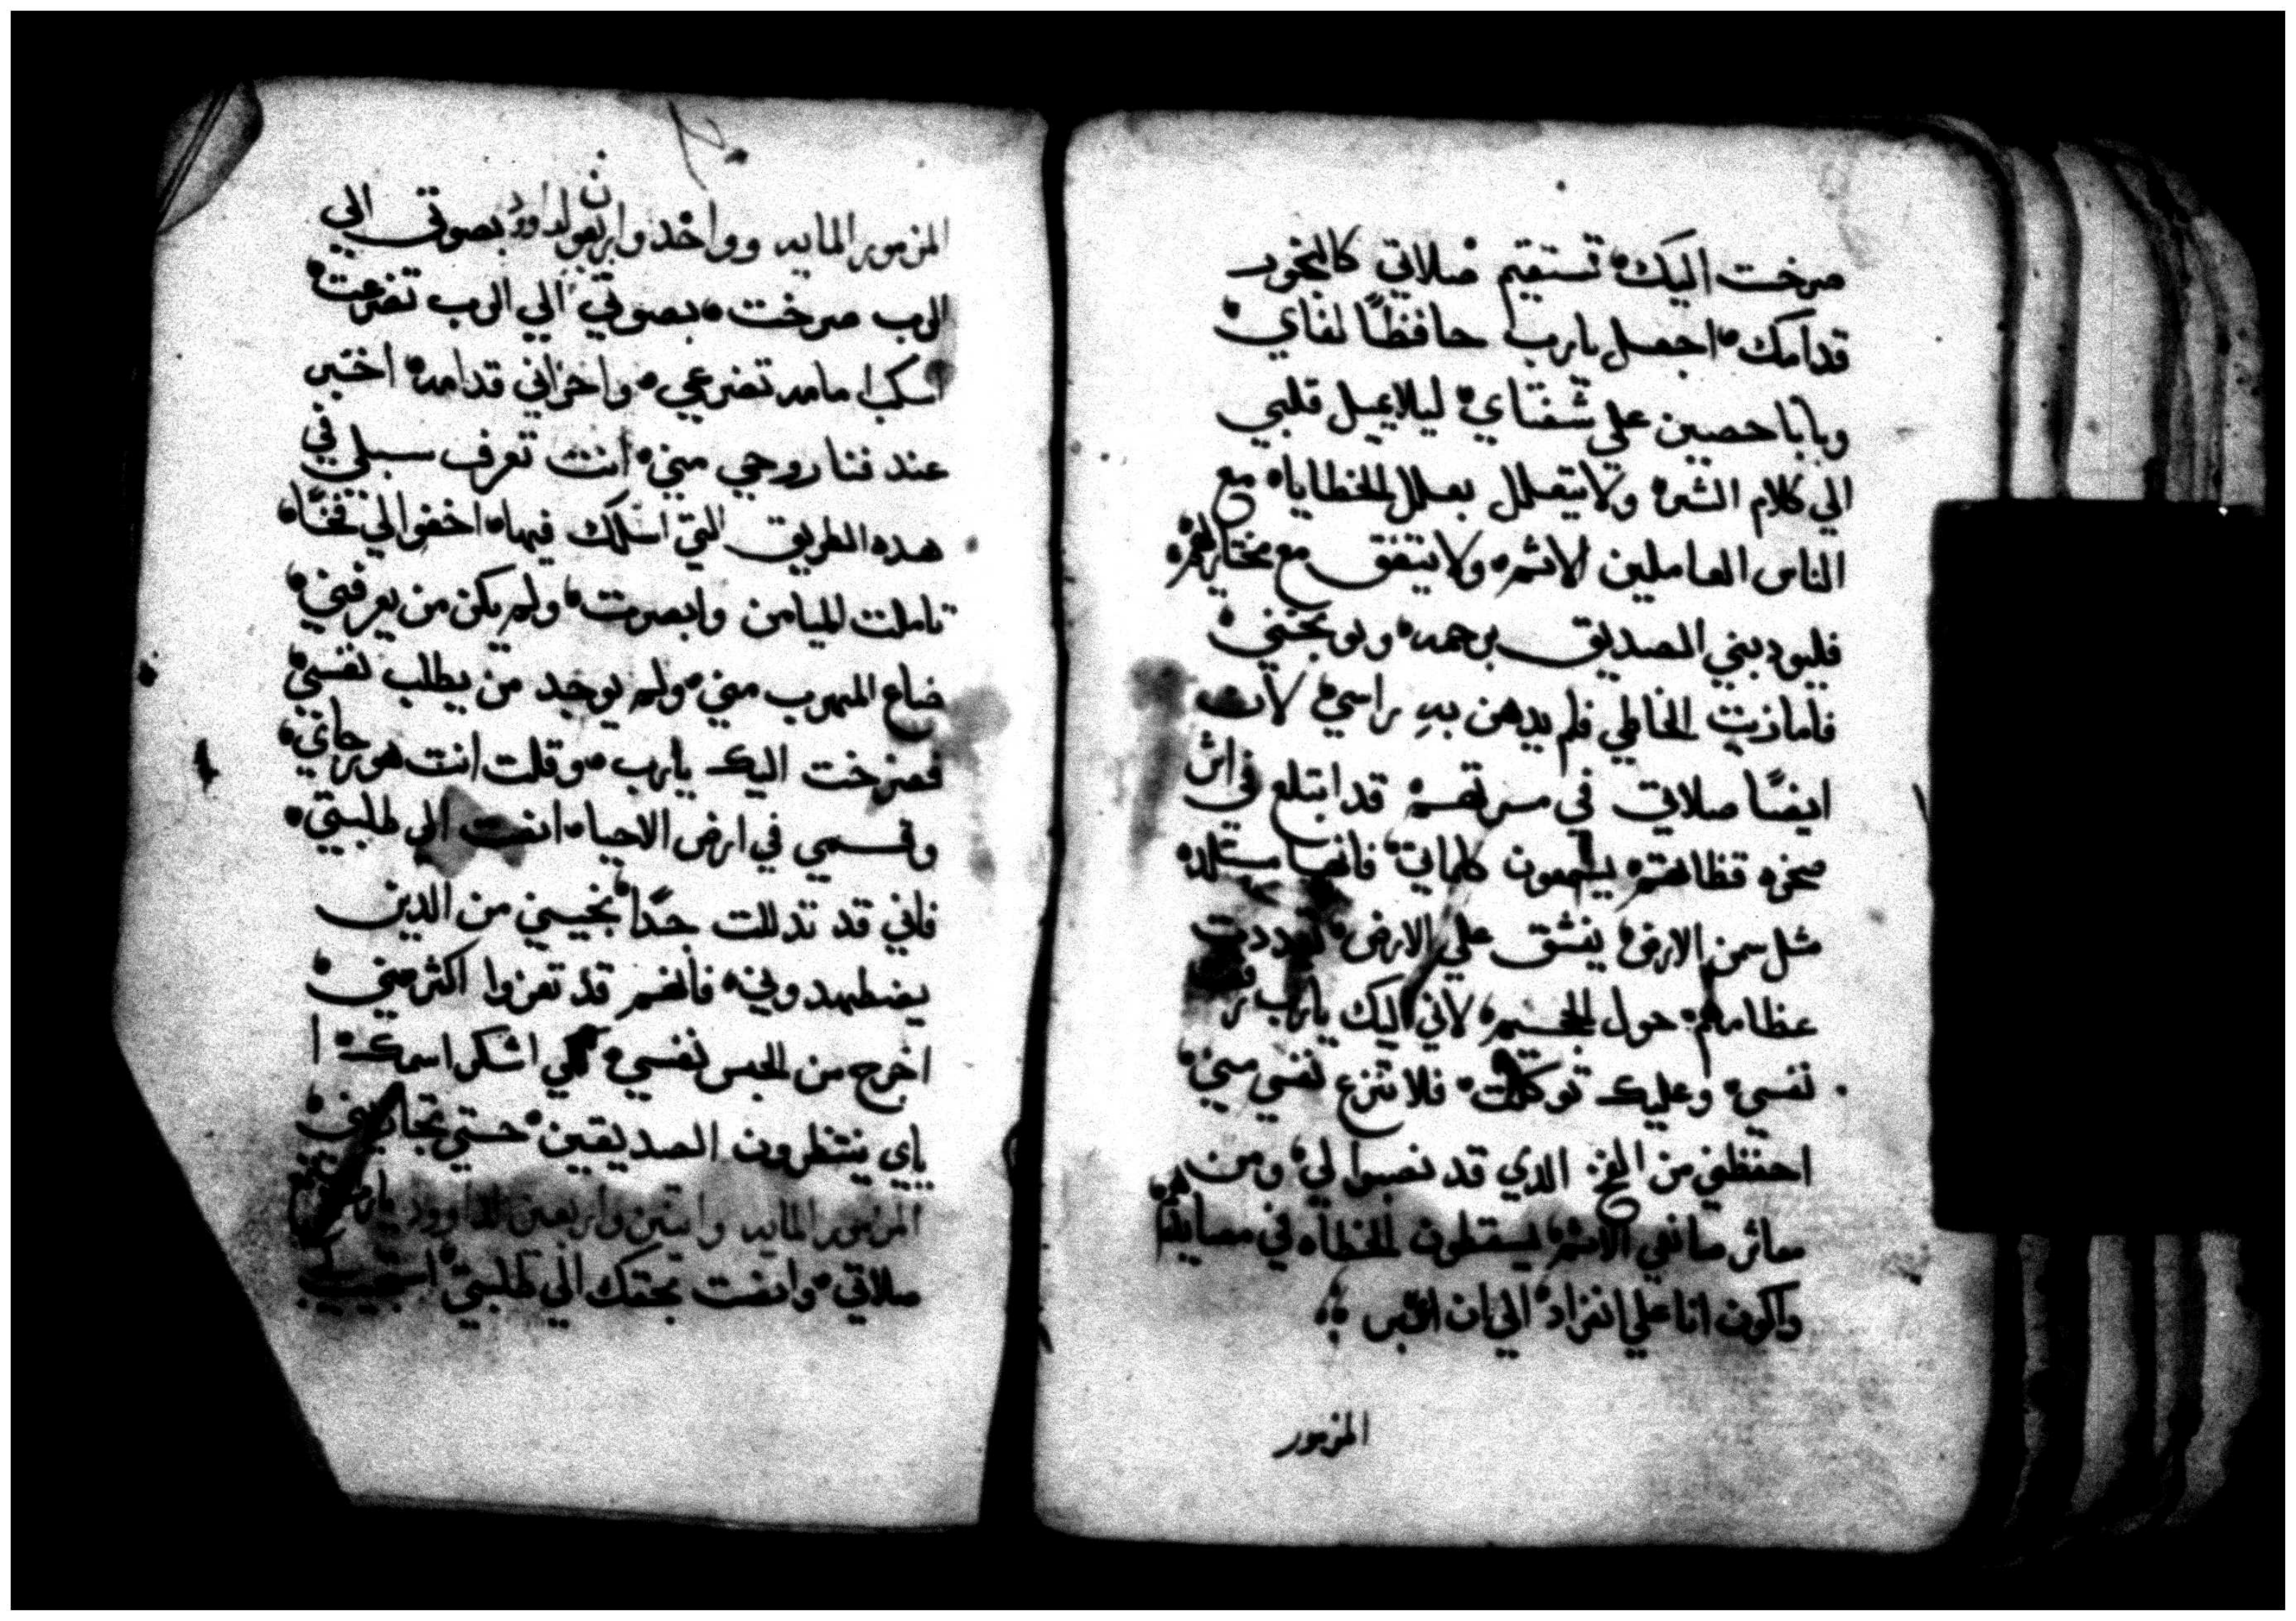 صرخت اليك تستقيم صلاتي كالبخور
قدامك اجعل يارب حافظًا لفاي
وبابا حصين علي شفتاي ليلا يميل قلبي
الي كلام الشر ولا يتعلل بعلل الخطايا مع
الناس العاملين الاثم ولا يتفق مع مختاريهم
فليودبني الصديق برحمه ويوبخني
فاما زيت الخاطي فلم يدهن به راسي لان
ايضًا صلاتي في مسرتهم قد ابتلع في اثر
صخره قظاتهم يسمعون كلماتي فانها مستلده
مثل سمن الارض ينشق علي الارض تبددت
عظامهم حول الجحيم لاني اليك يارب رفعت
نفسي وعليك توكلت فلا تنزع نفسي مني
احفظني من الفخ الدي قد نصبوا لي ومن
معاثر صانعي الاثم يسقطون الخطاه في مصايدهم
واكون انا علي انفراد الي ان اعبر
المزمور
المزمور المايه وواحد واربعون لداوود بصوتي الي
الرب صرخت بصوتي الي الرب تضرعت
اسكب امامه تضرعي واحزاني قدامه اخبر
عند فنا روحي مني انت تعرف سبلي في
هده الطريق التي اسلك فيها اخفوا لي فخًا
تاملت للميامن وابصرت ولم يكن من يعرفني
ضاع المهرب مني ولم يوجد من يطلب نفسي
فصرخت اليك يارب وقلت انت هو رجاي
وقسمي في ارض الاحيا انصت الي طلبتي
فاني قد تدللت جدًا نجيني من الدين
يضطهدوني فانهم قد تعزوا اكثر مني
اخرج من الحبس نفسي لكي اشكر اسمك ا
ياي ينتظرون الصديقين حتي تجازيني
المزمور المايه واتنين واربعين لداوود يارب
صلاتي وانصت بحقك الي طلبتي استجيب